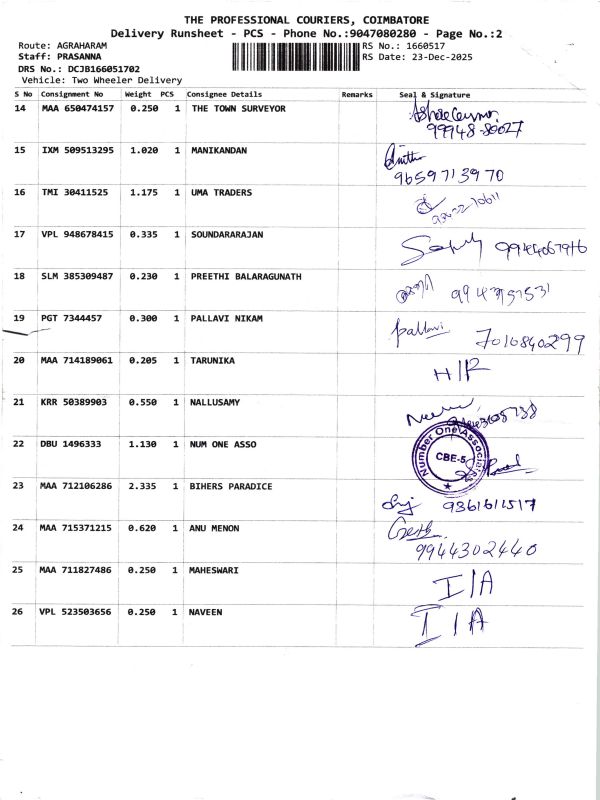 THE PROFESSIONAL COURIERS, COIMBATORE
Delivery Runsheet - PCS - Phone No.:9047080280 - Page No.:2
Route: AGRAHARAM RS No.: 1660517
Staff: PRASANNA RS Date: 23-Dec-2025
DRS No.: DCJB166051702
Vehicle: Two Wheeler Delivery
S No Consignment No Weight PCS Consignee Details Remarks Seal & Signature
14 MAA 650474157 0.250 1 THE TOWN SURVEYOR
99948-80027
15 IXM 509513295 1.020 1 MANIKANDAN
9659713970
16 TMI 30411525 1.175 1 UMA TRADERS
17 VPL 948678415 0.335 1 SOUNDARARAJAN
9944067916
18 SLM 385309487 0.230 1 PREETHI BALARAGUNATH
19 PGT 7344457 0.300 1 PALLAVI NIKAM Pallavi 7016840299
20 MAA 714189061 0.205 1 TARUNIKA H/R
21 KRR 50389903 0.550 1 NALLUSAMY
22 DBU 1496333 1.130 1 NUM ONE ASSO Number One Associates CBE-5
23 MAA 712106286 2.335 1 BIHERS PARADICE
9361611517
24 MAA 715371215 0.620 1 ANU MENON
9944302440
25 MAA 711827486 0.250 1 MAHESWARI I/A
26 VPL 523503656 0.250 1 NAVEEN I/A